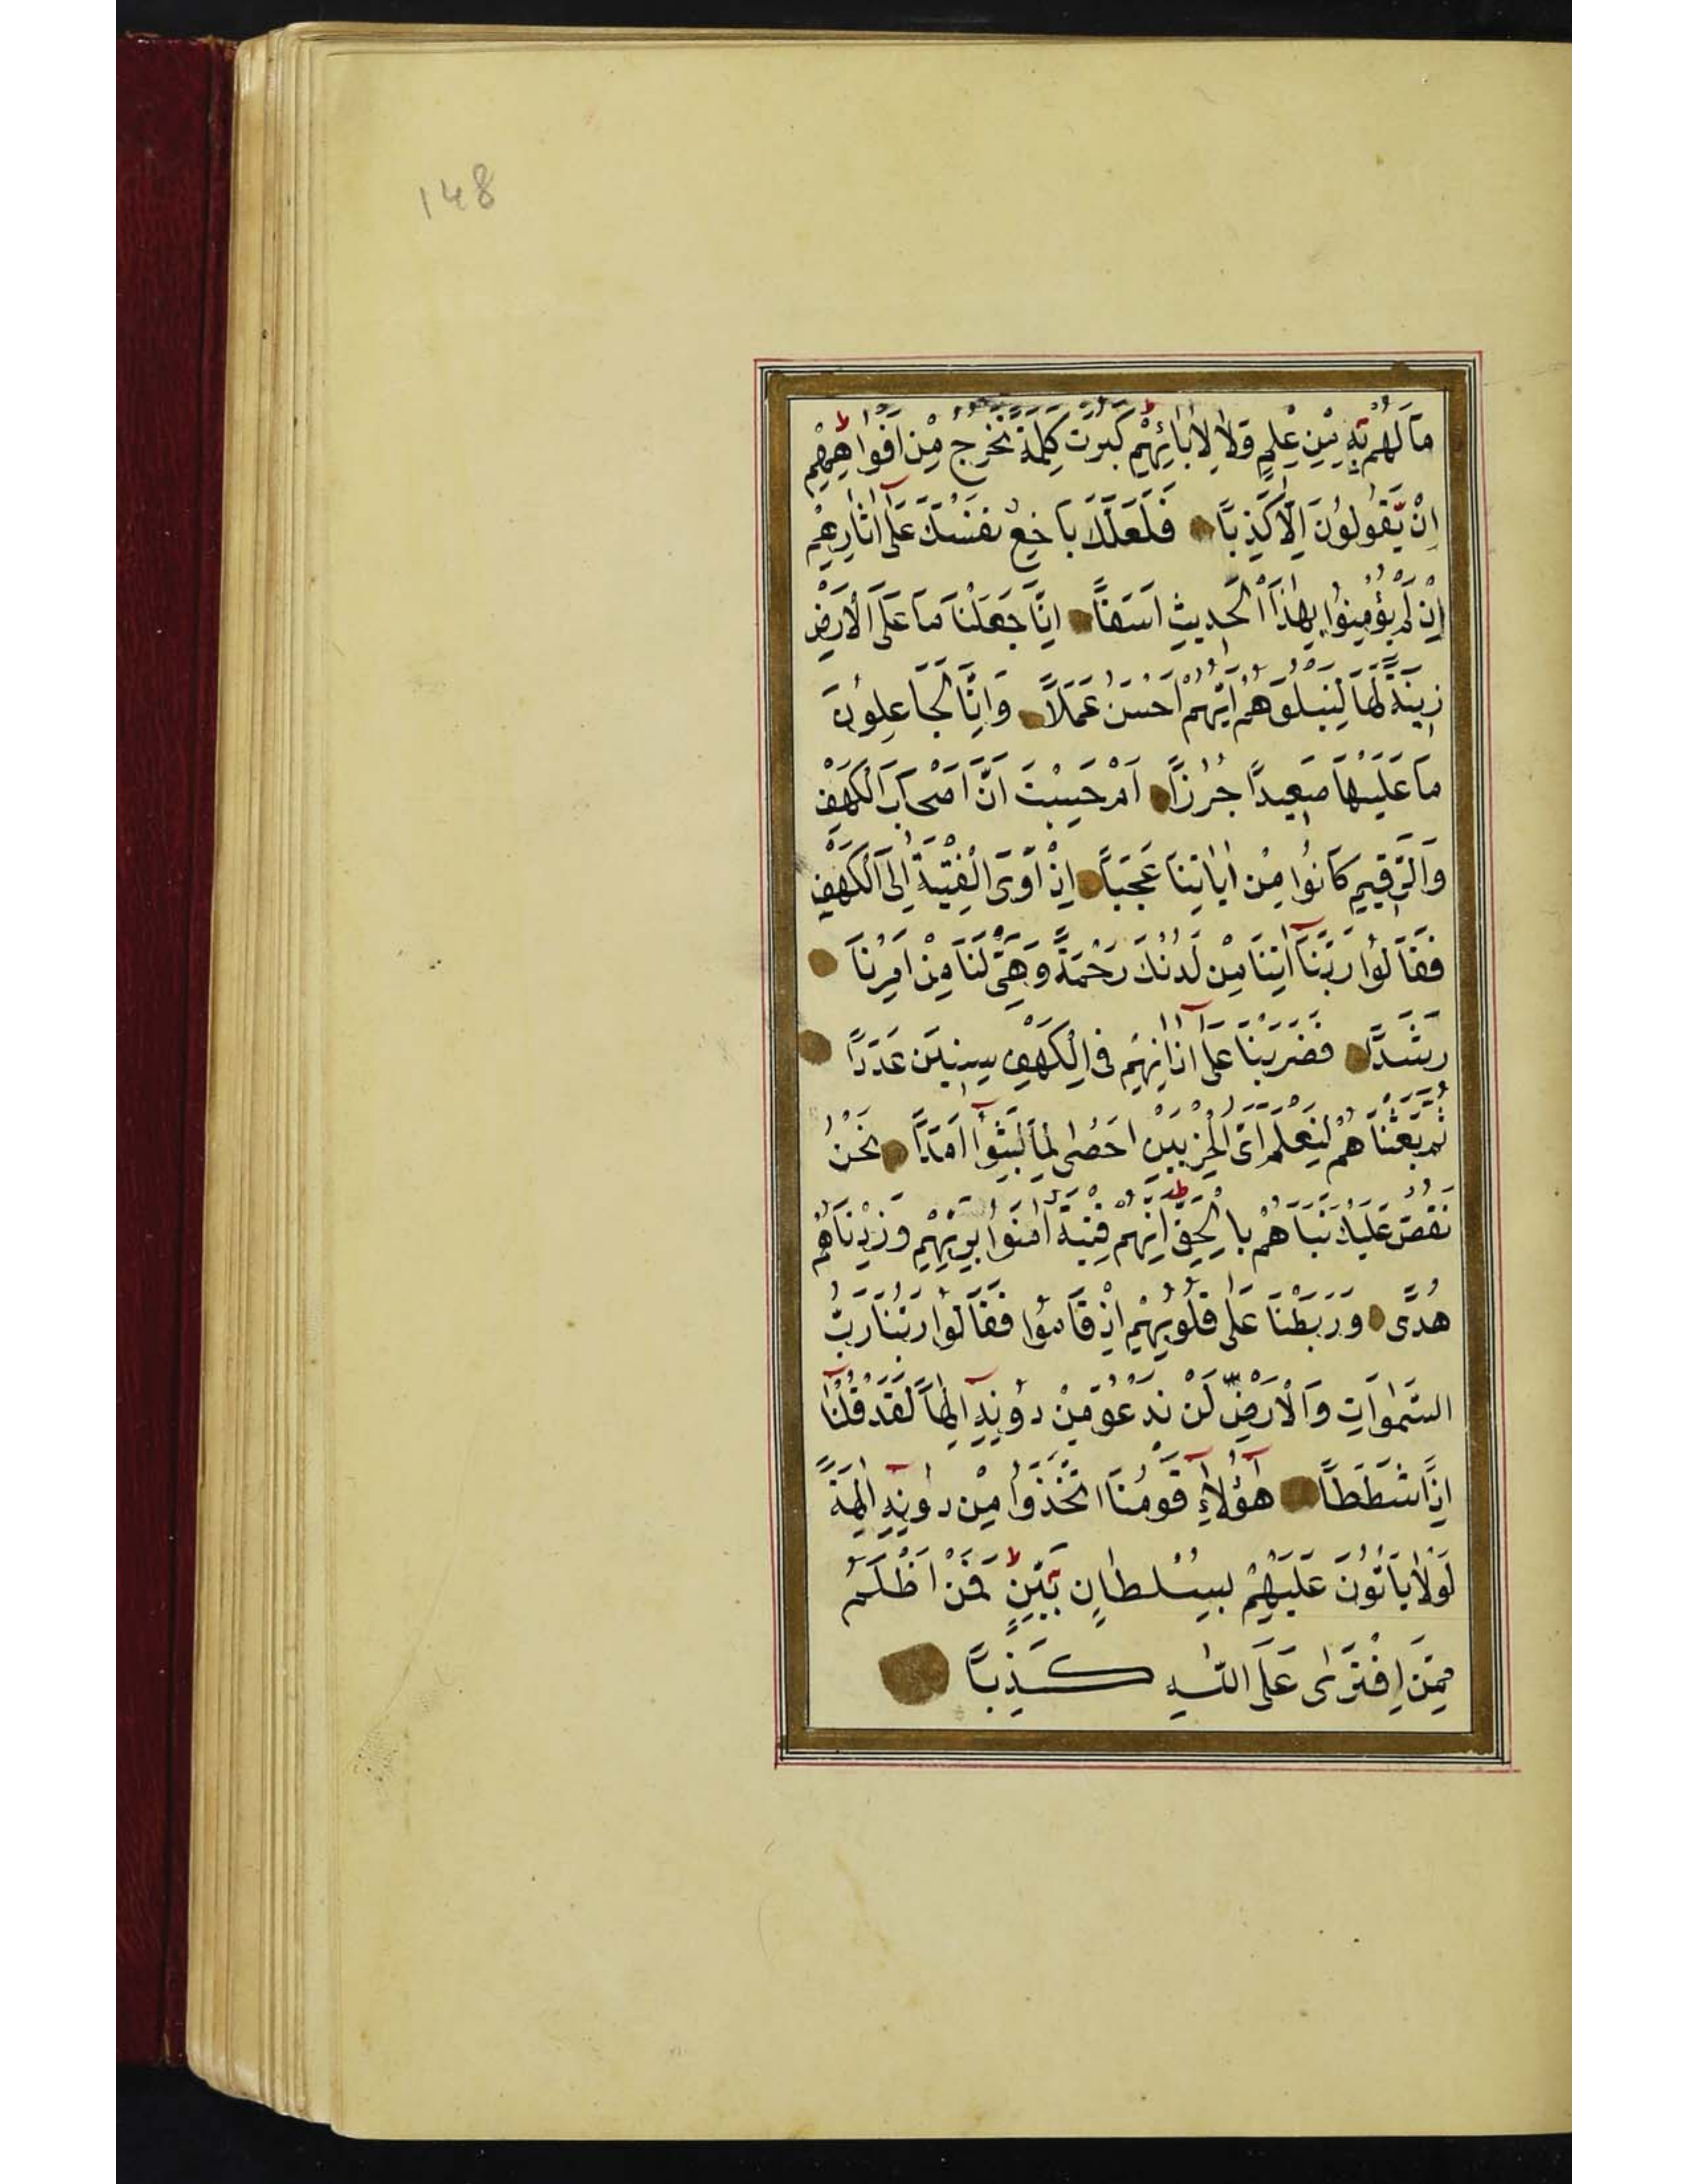 148
مَا لَهُمْ بِهِ مِنْ عِلْمٍ وَلَا لِاٰبَائِهِمْ ط كَبُرَتْ كَلِمَةً تَخْرُجُ مِنْ اَفْوَاهِهِمْ ط
اِنْ يَقُولُونَ اِلَّا كَذِبًا فَلَعَلَّكَ بَاخِعٌ نَفْسَكَ عَلٰٓى اٰثَارِهِمْ
اِنْ لَمْ يُؤْمِنُوا بِهٰذَا الْحَدِيثِ اَسَفًا اِنَّا جَعَلْنَا مَا عَلَى الْاَرْضِ
زِينَةً لَهَا لِنَبْلُوَهُمْ اَيُّهُمْ اَحْسَنُ عَمَلًا وَاِنَّا لَجَاعِلُونَ
مَا عَلَيْهَا صَعِيدًا جُرُزًا اَمْ حَسِبْتَ اَنَّ اَصْحَابَ الْكَهْفِ
وَالرَّقِيمِ كَانُوا مِنْ اٰيَاتِنَا عَجَبًا اِذْ اَوَى الْفِتْيَةُ اِلَى الْكَهْفِ
فَقَالُوا رَبَّنَٓا اٰتِنَا مِنْ لَدُنْكَ رَحْمَةً وَهَيِّئْ لَنَا مِنْ اَمْرِنَا
رَشَدًا فَضَرَبْنَا عَلٰٓى اٰذَانِهِمْ فِى الْكَهْفِ سِنِينَ عَدَدًا
ثُمَّ بَعَثْنَاهُمْ لِنَعْلَمَ اَىُّ الْحِزْبَيْنِ اَحْصٰى لِمَا لَبِثُٓوا اَمَدًا نَحْنُ
نَقُصُّ عَلَيْكَ نَبَاَهُمْ بِالْحَقِّ ط اِنَّهُمْ فِتْيَةٌ اٰمَنُوا بِرَبِّهِمْ وَزِدْنَاهُمْ
هُدًى وَرَبَطْنَا عَلٰى قُلُوبِهِمْ اِذْ قَامُوا فَقَالُوا رَبُّنَا رَبُّ
السَّمٰوَاتِ وَالْاَرْضِ لَنْ نَدْعُوَ مِنْ دُونِهِٓ اِلٰهًا لَقَدْ قُلْنَٓا
اِذًا شَطَطًا هٰٓؤُلَٓاءِ قَوْمُنَا اتَّخَذُوا مِنْ دُونِهِٓ اٰلِهَةً
لَوْلَا يَاْتُونَ عَلَيْهِمْ بِسُلْطَانٍ بَيِّنٍ ط فَمَنْ اَظْلَمُ
مِمَّنِ افْتَرٰى عَلَى اللّٰهِ كَذِبًا